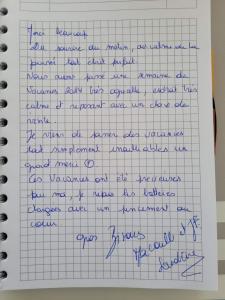 Merci beaucoup
Du sourire du matin, au calme de la
tout était parfait.
Nous avons passé une semaine de
vacances très agréable, endroit très
calme et reposant avec un
vente.
Je viens de passer des vacances
tout simplement inoubliables un
grand merci
Ces vacances ont été précieuses
pour moi, je repars les batteries
chargées avec un pincement au
cœur.
Gros Bisous